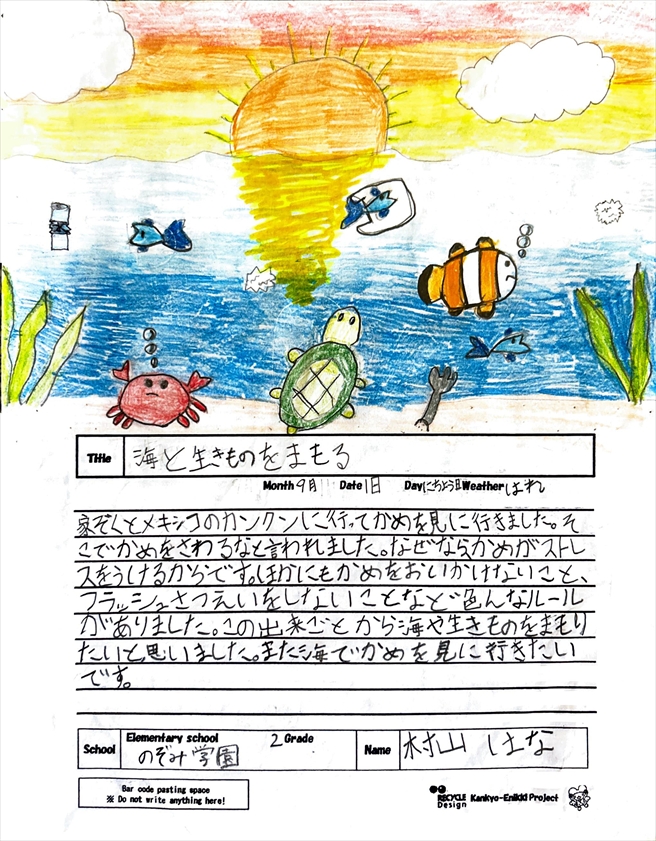 Title 海と生きものをまもる
Month 9月 Date 1日 Day にちよう日 Weather はれ
家ぞくとメキシコのカンクンに行ってかめを見に行きました。そ
こでかめをさわるなと言われました。なぜならかめがストレ
スをうけるからです。ほかにもかめをおいかけないこと、
フラッシュさつえいをしないことなど色んなルール
がありました。この出来ごとから海や生きものをまもり
たいと思いました。また海でかめを見に行きたい
です。
School Elementary school 2 Grade Name 村山 はな
のぞみ学園
Bar code pasting space
※ Do not write anything here!
RECYCLE Design Kankyo-Enikki Project